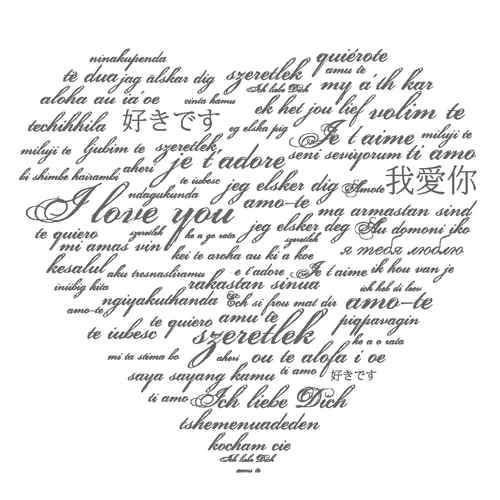 ninakupenda quiérote
të dua jag älskar dig szeretlek amu te
Ich liebe Dich my a'th kar
aloha au iá'oe cinta kamu ek het jou lief volim te
techihhila 好きです eg elska pig Je t'aime miluji te
miluji te ljubim te szeretlek seni seviyorum ti amo
bi shimbe hairambi aheri je t'adore
te iubesc jeg elsker dig Amote 我愛你
ndagukunda amo-te
I love you ma armastan sind
te quiero szeretlek ke a go rata jeg elsker deg Au domoni iko
mi amas vin szeretlek я тебя люблю
kei te aroha au ki a koe
kesalul aku tresnasliramu e t'adore Je t'aime ik hou van je
iniibig kita rakastan sinua ich hob di liev
ngiyakuthanda Ech si frou mat dir amo-te
amo-te
te quiero amu te pigpavagin
te iubesc szeretlek ke a o rata
mi ta stima bo aheri ou te alofa i oe
saya sayang kamu ti amo 好きです
ti amo Ich liebe Dich
tshemenuadeden
kocham cie
Ich liebe Dich
amu te